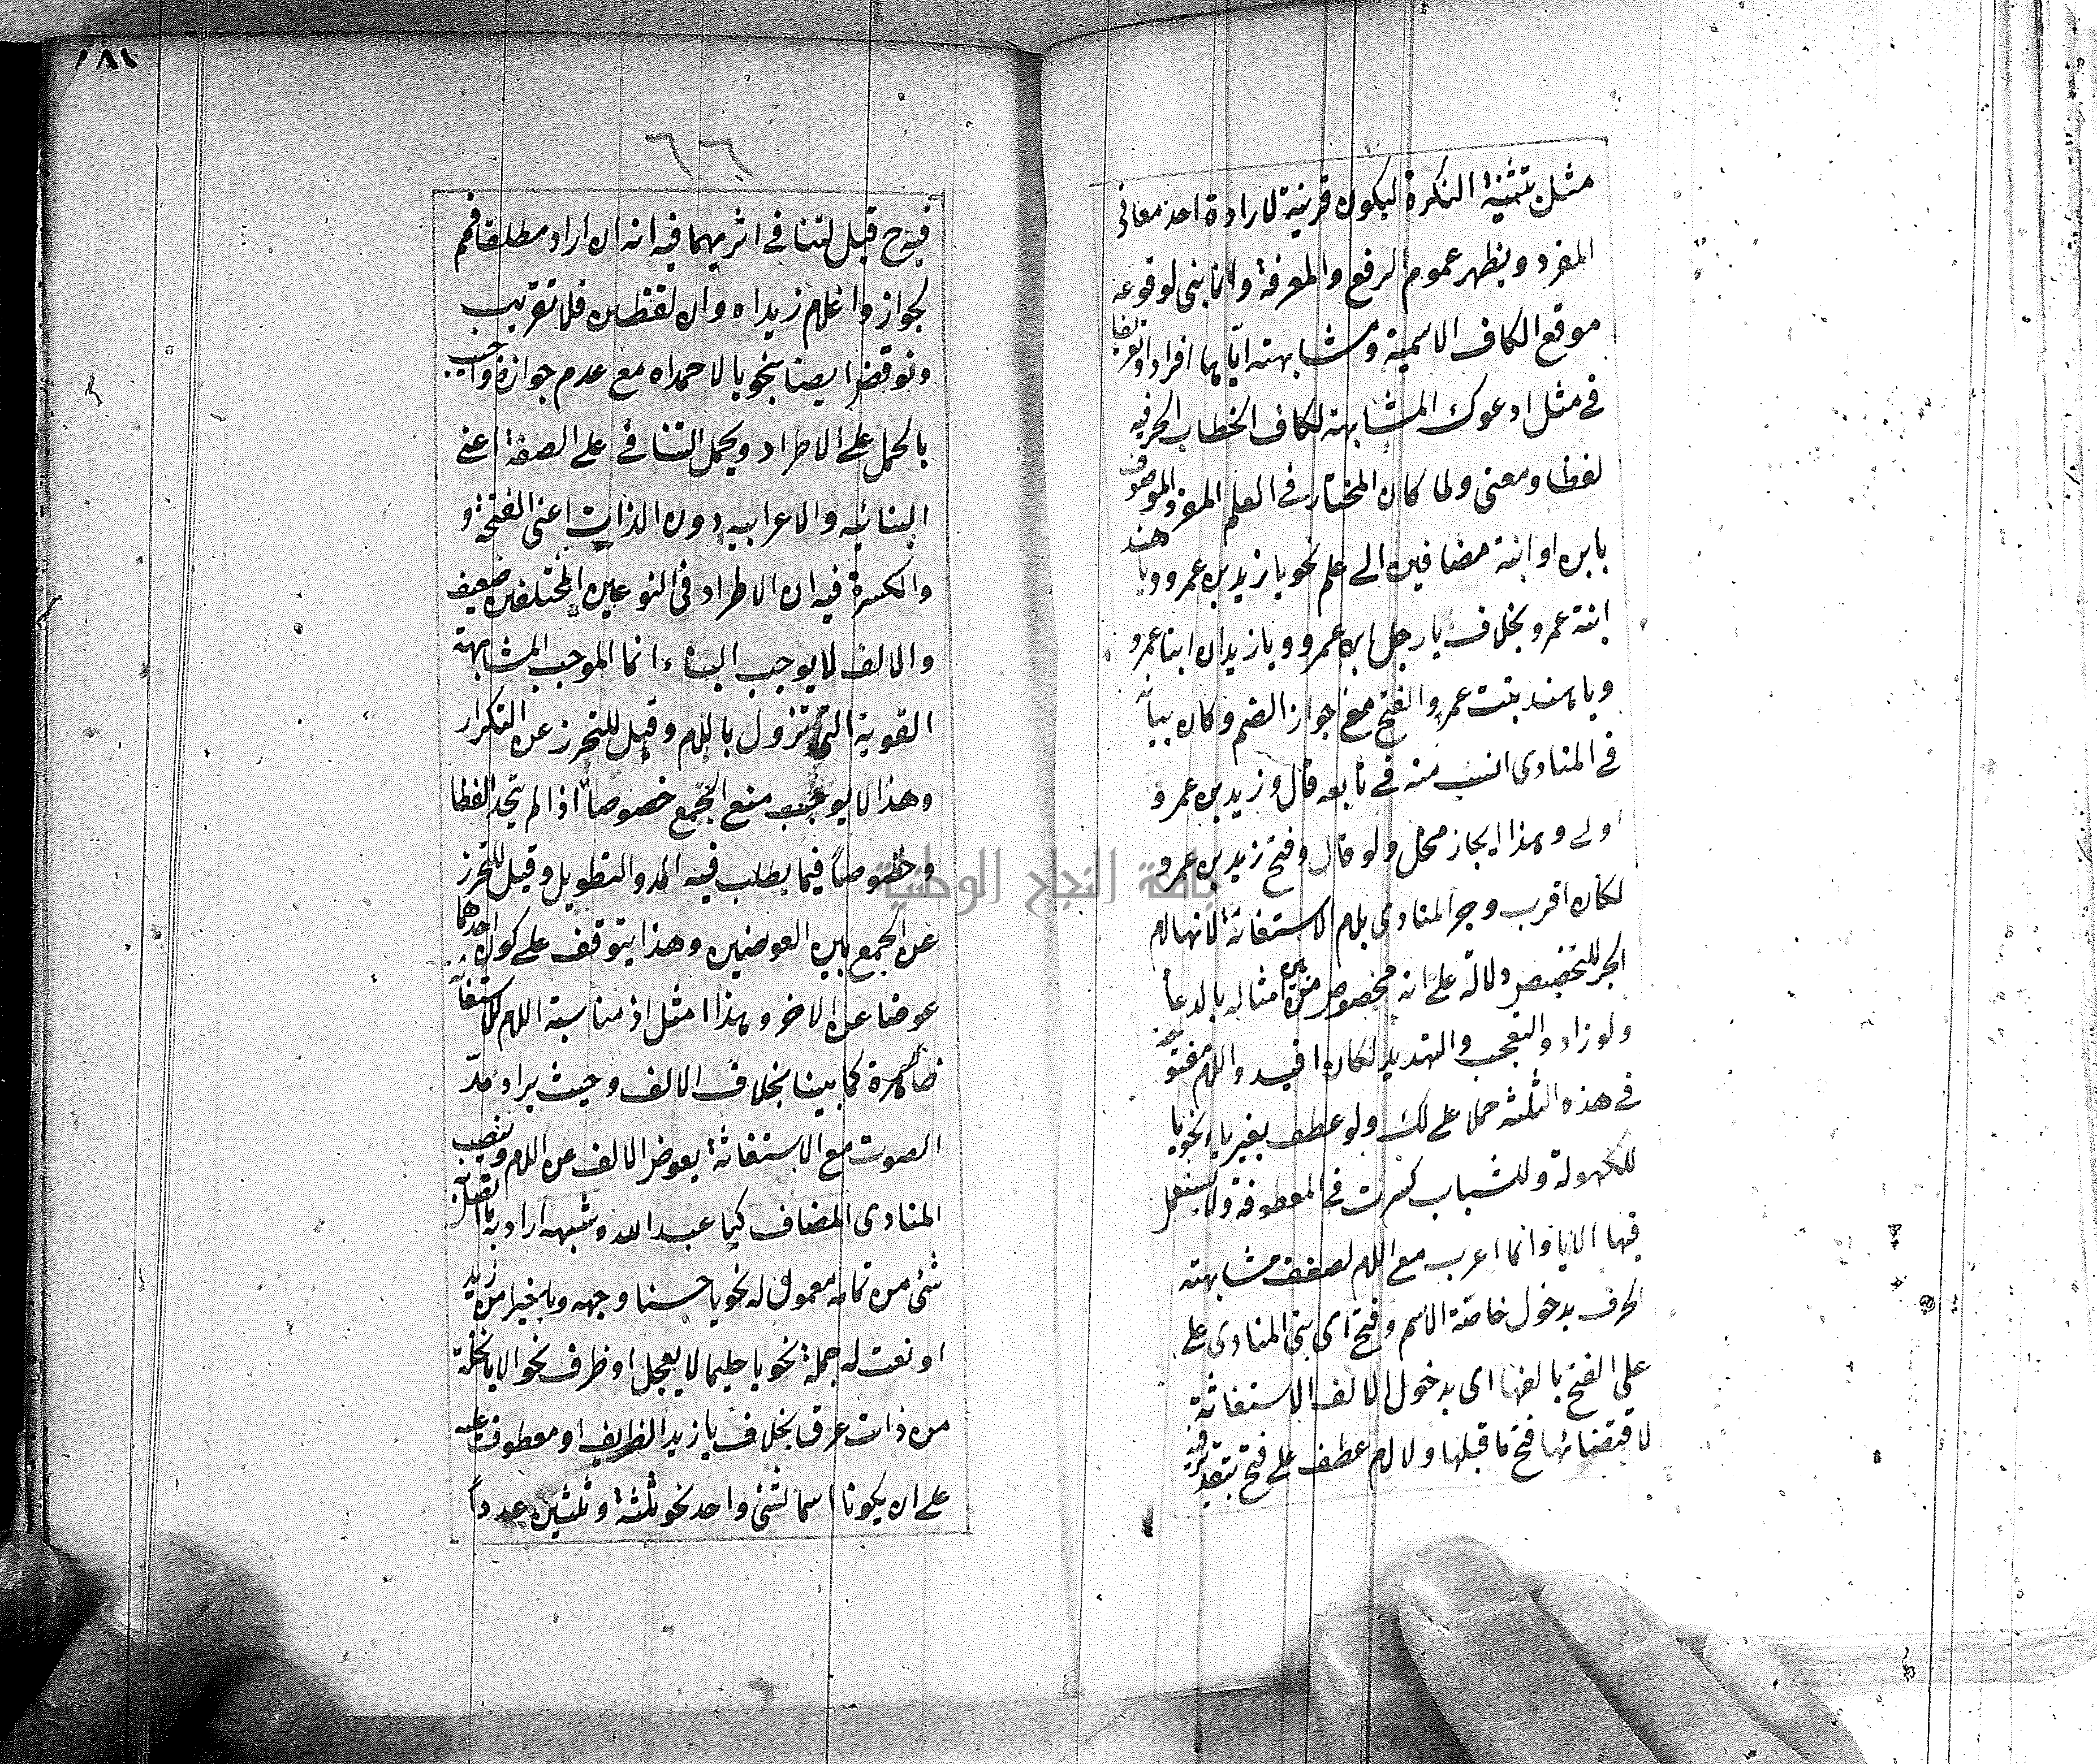 مثل تثنية النكرة ليكون قرينة لارادة احد معانى
المفرد ويظهر عموم الرفع والمعرفة وانما بنى لوقوعه
موقع الكاف الاسمية ومشابهته اياها افرادا وتعريفا
فى مثل ادعوك المشابهة لكاف الخطاب الحرفيه
لفظا ومعنى ولما كان المختار فى العلم المفرد الموصوف
بابن او ابنة مضافين الى علم نحو يا زيد بن عمرو ويا هند
ابنة عمرو بخلاف يا رجل ابن عمرو ويا زيدان ابنا عمرو
ويا هند بنت عمرو الفتح مع جواز الضم وكان بيانه
فى المنادى انسب منه فى تابعه قال وزيد بن عمرو
اولى وهذا ايجاز مخل ولو قال وفتح زيد بن عمرو
لكان اقرب وجر المنادى بلام الاستغاثة لانها لام
الجر للتخصيص دلالة على انه مخصوص من بين امثاله بالدعاء
ولو زاد والتعجب والتهديد لكان افيد واللام مفتوحة
فى هذه الثلثة حملا على لك ولو عطف بغير ياء نحو يا
للكهولة وللشباب كسرت فى المعطوفة ولا يستعمل
فيها الا يا وانما اعرب مع اللام لضعف مشابهته
الحرف بدخول خاصة الاسم وفتح اى بنى المنادى على
على الفتح بالفها اى بدخول الالف الاستغاثة
لاقتضائها فتح ما قبلها ولا لام عطف على فتح بتقدير فيه
٦٦
١٨١
فيه ح قيل لتنافى اثريهما فيه انه ان اراد مطلقا فمم
لجواز واغلام زيداه وان لفظين فلا تقريب
ونوقض ايضا بنحو يا لاحمداه مع عدم جوازه واجيب
بالحمل على الاطراد ويحمل التنافى على الصفة اعنى
البنائيه والاعرابيه دون الذات اعنى الفتحة و
والكسرة فيه ان الاطراد فى النوعين المختلفين ضعيف
والالف لا يوجب البناء انما الموجب المشابهة
القوية التى تزول باللام وقيل للتحرز عن التكرار
وهذا لا يوجب منع الجمع خصوصا اذا لم يتحد لفظا
وخصوصا فيما يطلب فيه المد والتطويل وقيل للتحرز
عن الجمع بين العوضين وهذا يتوقف على كون احدهما
عوضا عن الاخر وهذا امثل اذ مناسبة اللام للاستغاثة
ظاهرة كما بينا بخلاف الالف وحيث يراد مد
الصوت مع الاستغاثة يعوض الالف عن اللام وينصب
المنادى المضاف كيا عبد الله وشبهه اراد به ما اتصل به
شئ من تمامه معمول له نحو يا حسنا وجهه ويا خيرا من زيد
او نعت له جملة نحو يا حليما لا يعجل او ظرف نحو الا يا نخلة
من ذات عرق بخلاف يا زيد الظريف او معطوف عليه
على ان يكونا اسما لشئ واحد نحو ثلثة وثلثين عددا
جامعة النجاح الوطنية